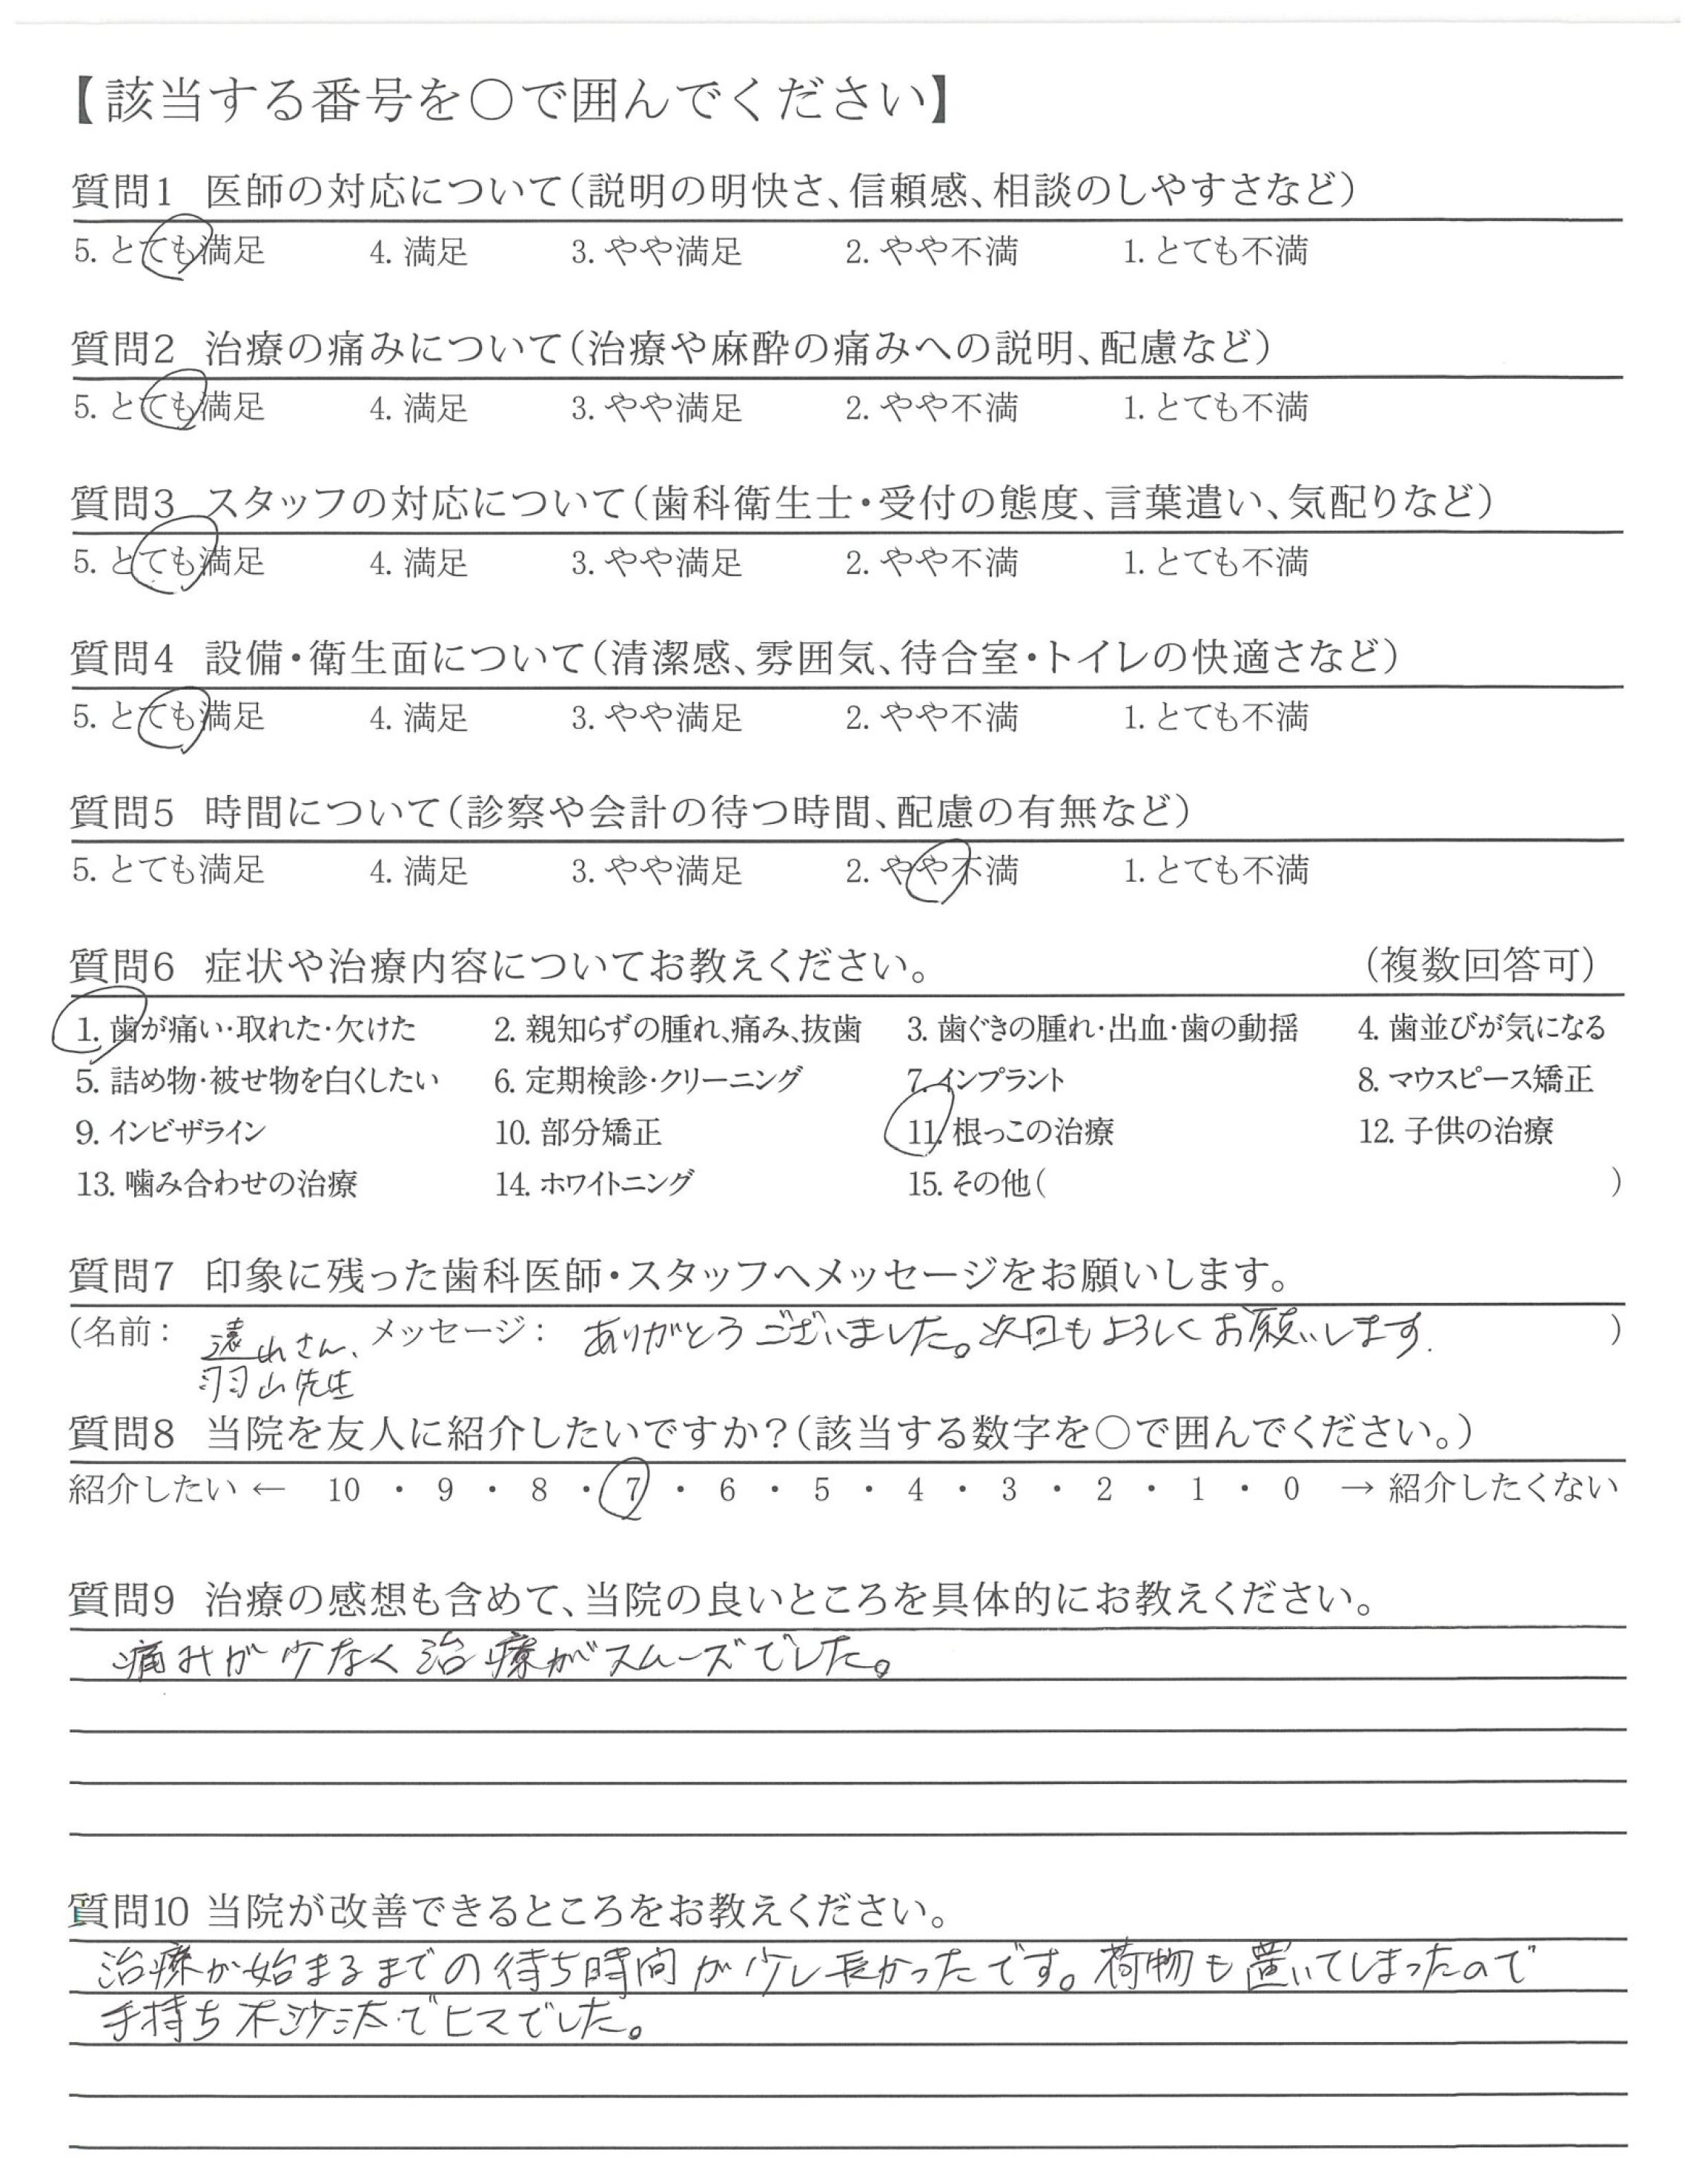 【該当する番号を○で囲んでください】
質問1 医師の対応について(説明の明快さ、信頼感、相談のしやすさなど)
5. とても満足 4. 満足 3. やや満足 2. やや不満 1. とても不満
質問2 治療の痛みについて(治療や麻酔の痛みへの説明、配慮など)
5. とても満足 4. 満足 3. やや満足 2. やや不満 1. とても不満
質問3 スタッフの対応について(歯科衛生士・受付の態度、言葉遣い、気配りなど)
5. とても満足 4. 満足 3. やや満足 2. やや不満 1. とても不満
質問4 設備・衛生面について(清潔感、雰囲気、待合室・トイレの快適さなど)
5. とても満足 4. 満足 3. やや満足 2. やや不満 1. とても不満
質問5 時間について(診察や会計の待つ時間、配慮の有無など)
5. とても満足 4. 満足 3. やや満足 2. やや不満 1. とても不満
質問6 症状や治療内容についてお教えください。 (複数回答可)
1. 歯が痛い・取れた・欠けた 2. 親知らずの腫れ、痛み、抜歯 3. 歯ぐきの腫れ・出血・歯の動揺 4. 歯並びが気になる
5. 詰め物・被せ物を白くしたい 6. 定期検診・クリーニング 7. インプラント 8. マウスピース矯正
9. インビザライン 10. 部分矯正 11. 根っこの治療 12. 子供の治療
13. 噛み合わせの治療 14. ホワイトニング 15. その他( )
質問7 印象に残った歯科医師・スタッフへメッセージをお願いします。
(名前: 遠山さん、 メッセージ: ありがとうございました。次回もよろしくお願いします. )
羽山先生
質問8 当院を友人に紹介したいですか?(該当する数字を○で囲んでください。)
紹介したい ← 10 ・ 9 ・ 8 ・ 7 ・ 6 ・ 5 ・ 4 ・ 3 ・ 2 ・ 1 ・ 0 → 紹介したくない
質問9 治療の感想も含めて、当院の良いところを具体的にお教えください。
痛みが少なく治療がスムーズでした。
質問10 当院が改善できるところをお教えください。
治療か始まるまでの待ち時間が少し長かったです。荷物も置いてしまったので
手持ち不沙汰でヒマでした。